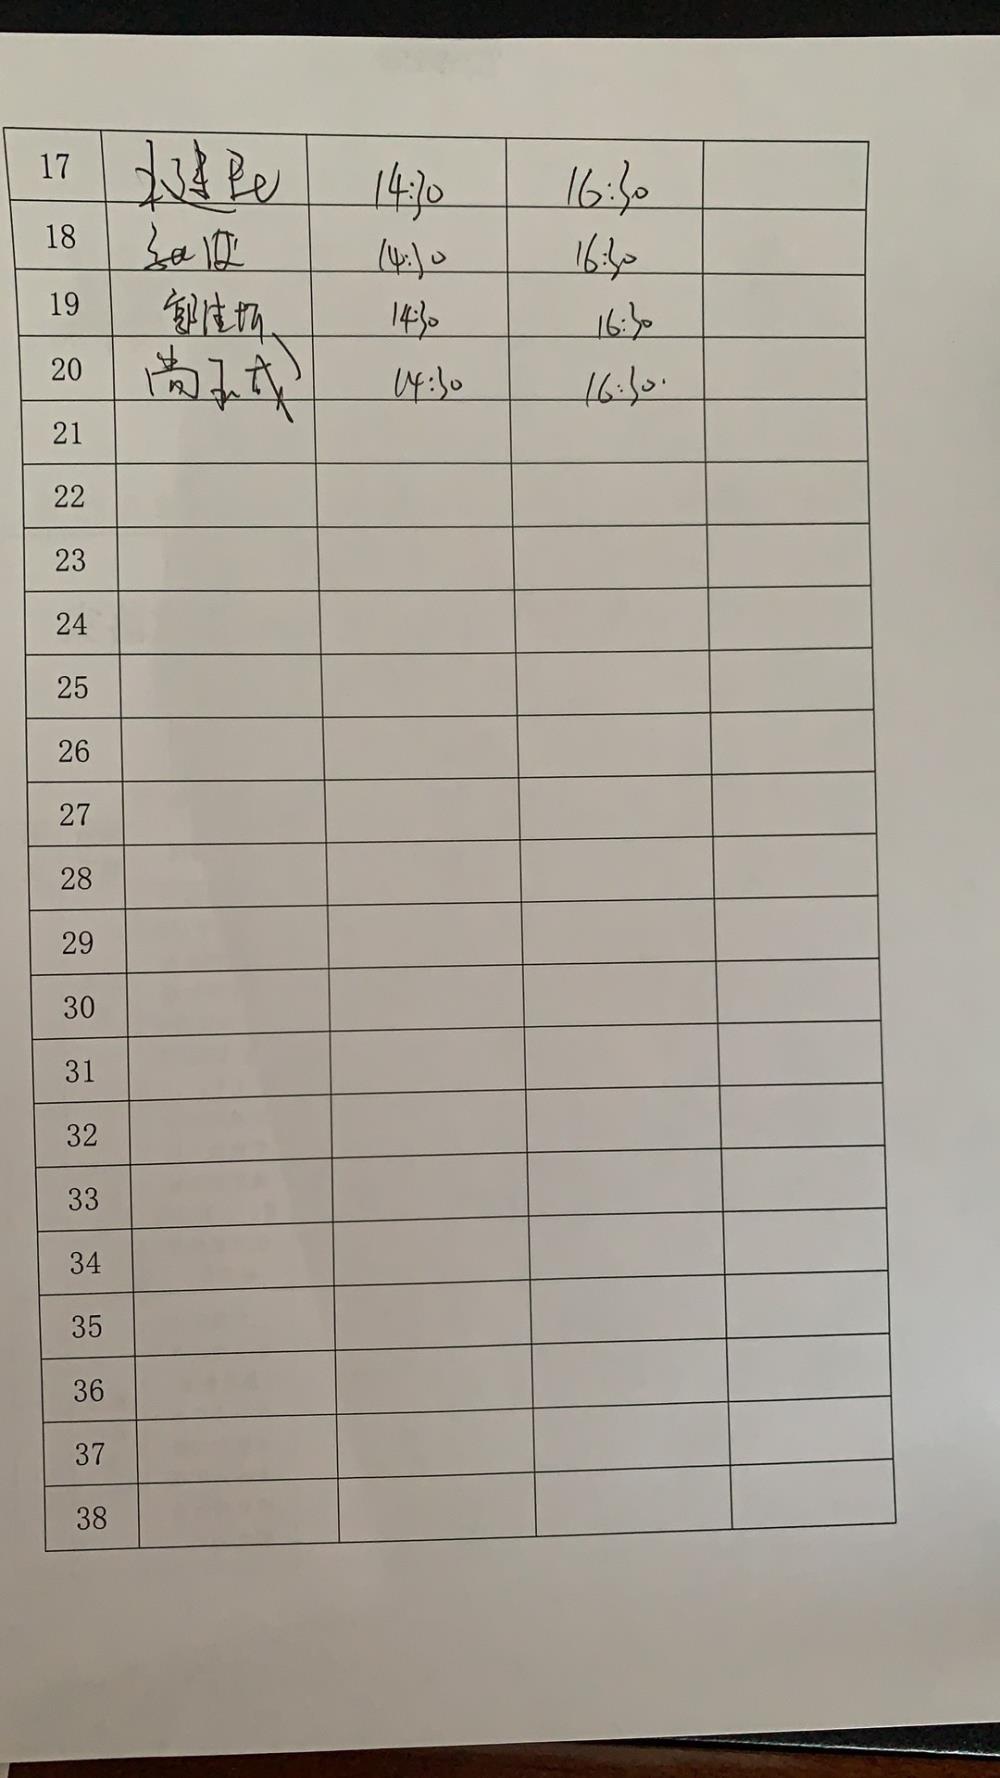 17 14:30 16:30
18 14:30 16:30
19 郭佳 14:30 16:30
20 尚子 14:30 16:30.
21
22
23
24
25
26
27
28
29
30
31
32
33
34
35
36
37
38